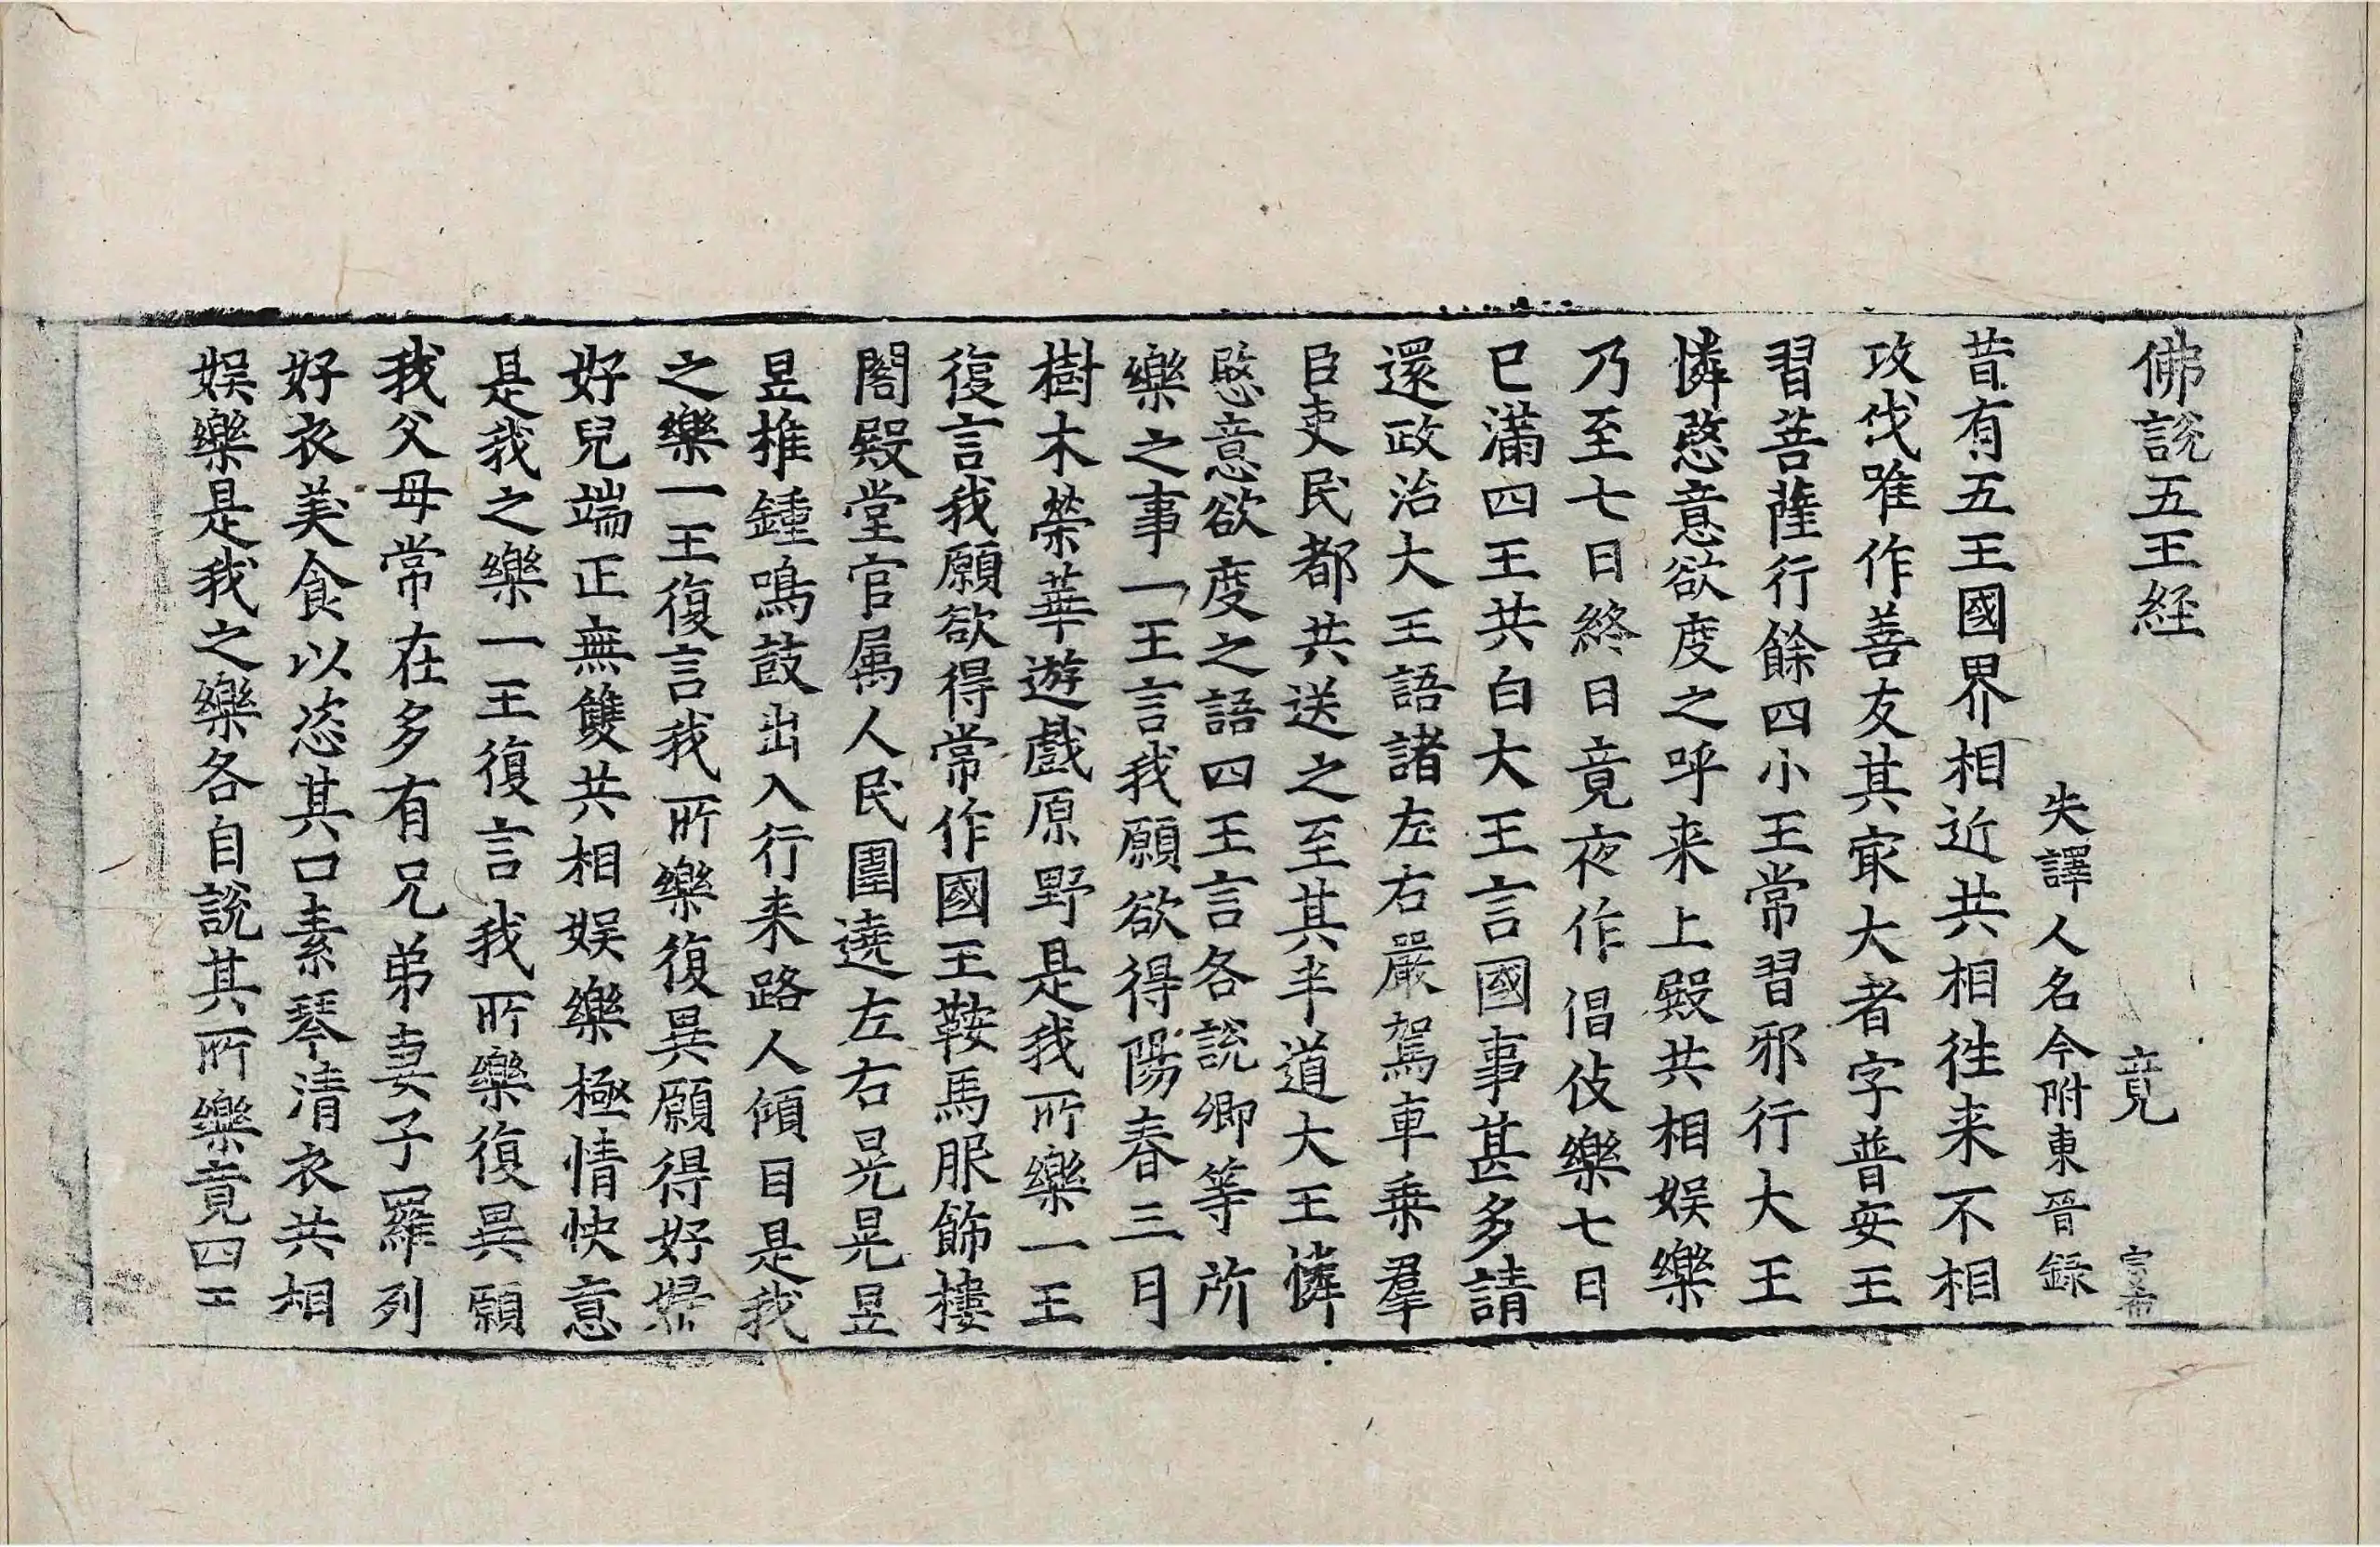 佛說五王経　竟　宗希
失譯人名今附東晉録
昔有五王國界相近共相徃来不相
攻伐唯作善友其㝡大者字普安王
習菩薩行餘四小王常習邪行大王
憐愍意欲度之呼来上殿共相娛樂
乃至七日終日竟夜作倡伎樂七日
已滿四王共白大王言國事甚多請
還政治大王語諸左右嚴駕車乗羣
臣吏民都共送之至其半道大王憐
愍意欲度之語四王言各説卿等所
樂之事一王言我願欲得陽春三月
樹木榮華遊戲原野是我所樂一王
復言我願欲得常作國王鞍馬服飾樓
閣殿堂官属人民圍遶左右晃晃昱
昱椎鍾鳴鼓出入行来路人傾目是我
之樂一王復言我所樂復異願得好婦
好兒端正無雙共相娛樂極情快意
是我之樂一王復言我所樂復異願
我父母常在多有兄弟妻子羅列
好衣美食以恣其口素琴清衣共相
娛樂是我之樂各自說其所樂竟四王